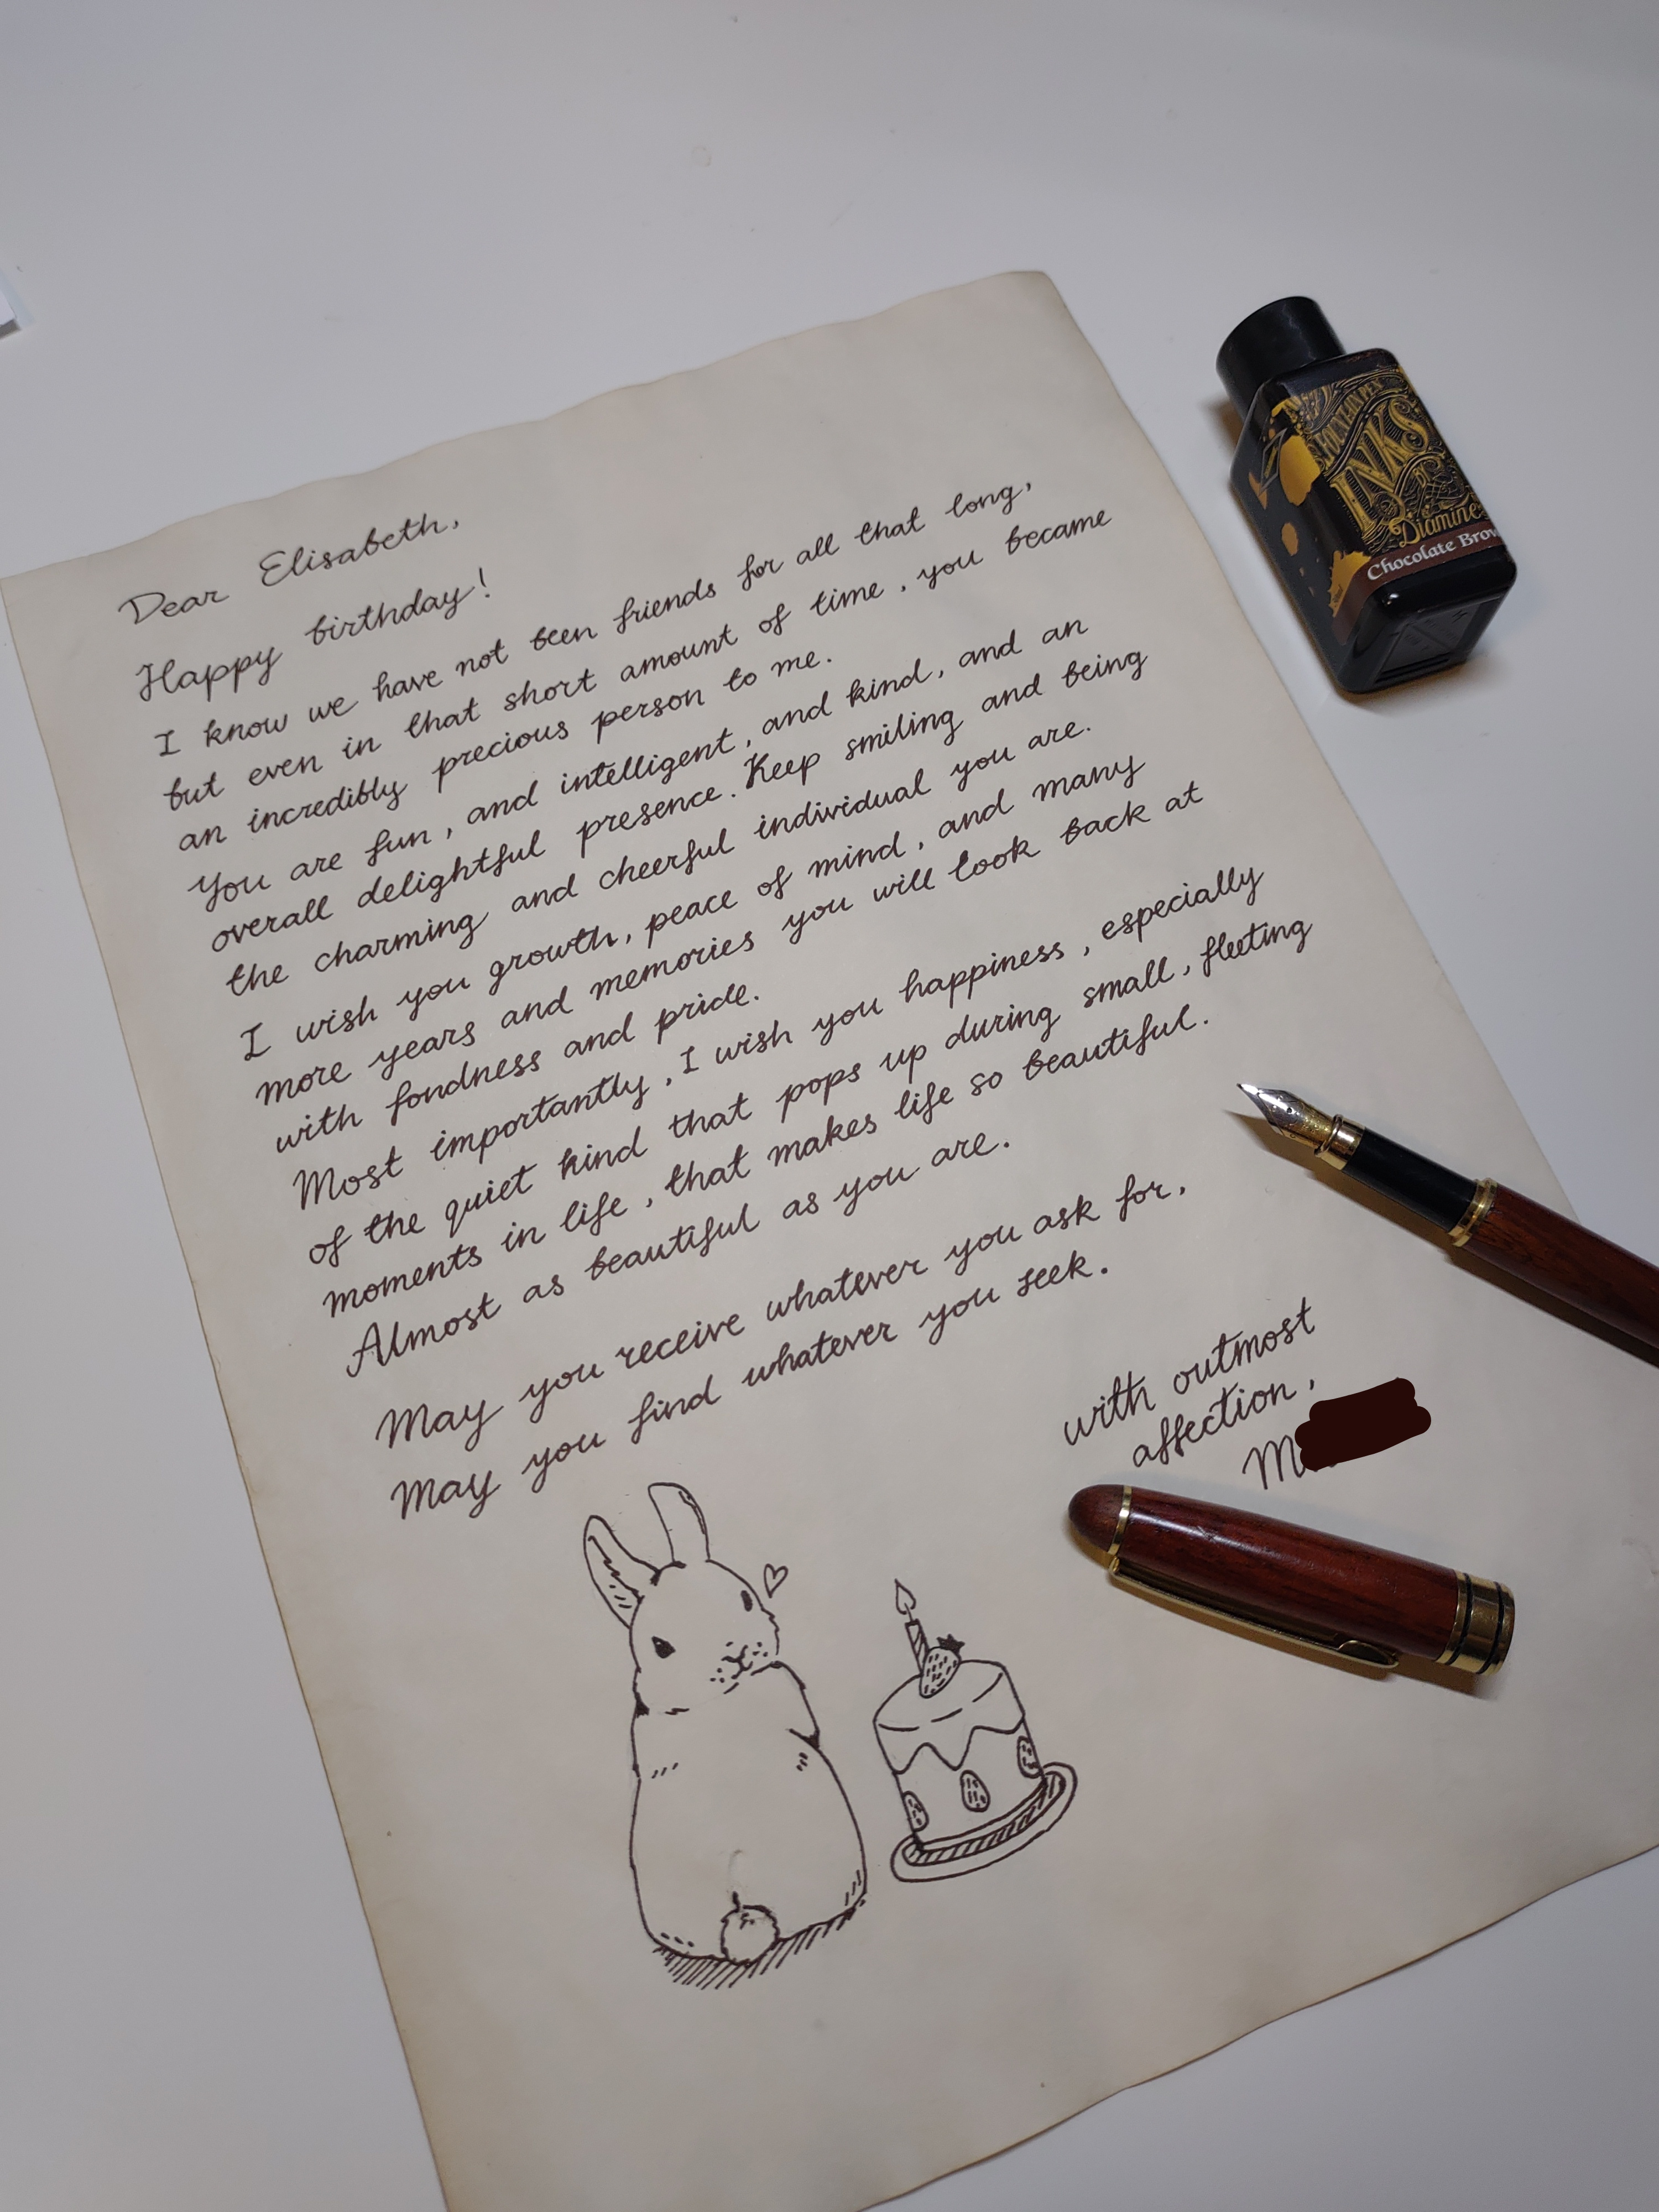 Dear Elisabeth,
Happy birthday!
I know we have not been friends for all that long,
but even in that short amount of time, you became
an incredibly precious person to me.
You are fun, and intelligent, and kind, and an
overall delightful presence. Keep smiling and being
the charming and cheerful individual you are.
I wish you growth, peace of mind, and many
more years and memories you will look back at
with fondness and pride.
Most importantly, I wish you happiness, especially
of the quiet kind that pops up during small, fleeting
moments in life, that makes life so beautiful.
Almost as beautiful as you are.
May you receive whatever you ask for,
May you find whatever you seek.
with outmost
affection,
M
INKS
Diamine
Chocolate Brow